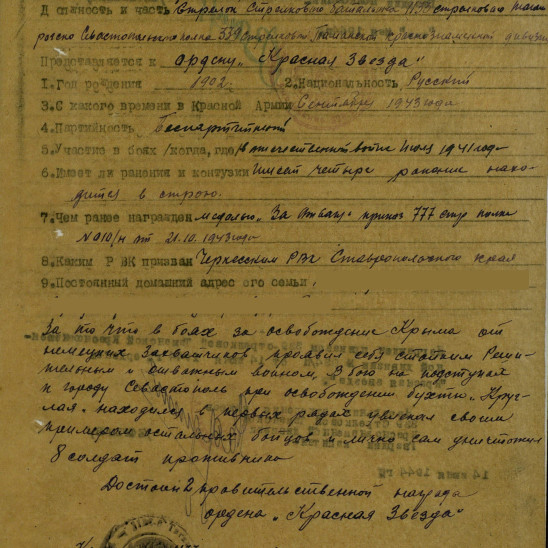 Должность и часть Стрелок Стрелкового батальона 1133 стрелкового
Севастопольского полка 339 стрелковой Таманской Краснознаменной дивизии
Представляется к ордену „Красная Звезда“
1. Год рождения 1902 2. Национальность Русский
3. С какого времени в Красной Армии Сентября 1943 года
4. Партийность Беспартийный
5. Участие в боях /когда, где/ в отечественной войне Июля 1941 года
6. Имеет ли ранения и контузии Имеет четыре ранение нахо-
дится в строю.
7. Чем ранее награжден медалью „За Отвагу“ приказ 777 стр полка
N 010/н от 21.10.1943 года
8. Каким РВК призван Черкесским РВК Ставропольского края
9. Постоянный домашний адрес его семьи
За то что в боях за освобождение Крыма от
немецких захватчиков проявил себя стойким Реши-
тельным и отважным воином. В бою на подступах
к городу Севастополь при освобождении бухты „Круг-
лая“ находился в первых рядах увлекая своим
примером остальных бойцов и лично сам уничтожил
8 солдат противника
Достоин правительственной награды
ордена „Красная Звезда“
14 мая 1944